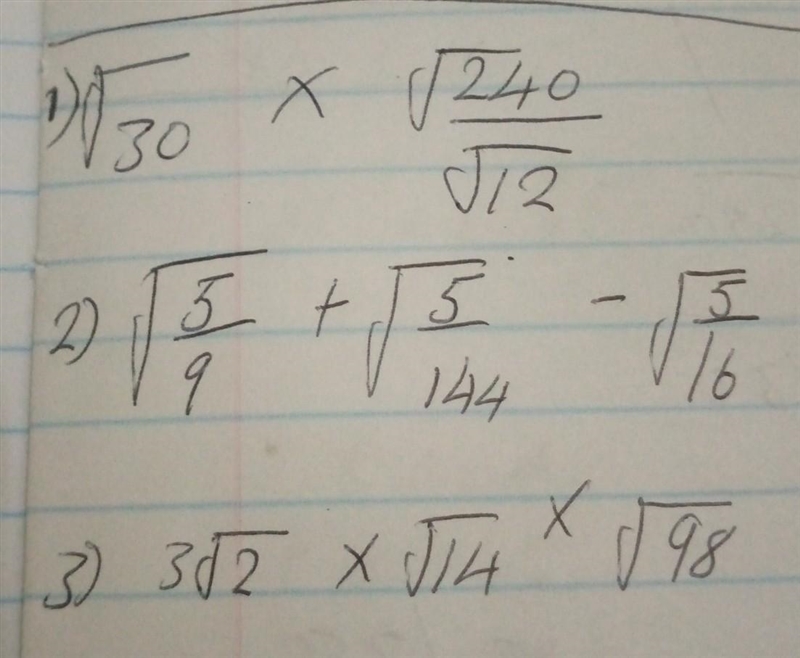 1) √30 × √240/√12
2) √5/9 + √5/144 - √5/16
3) 3√2 × √14 × √98